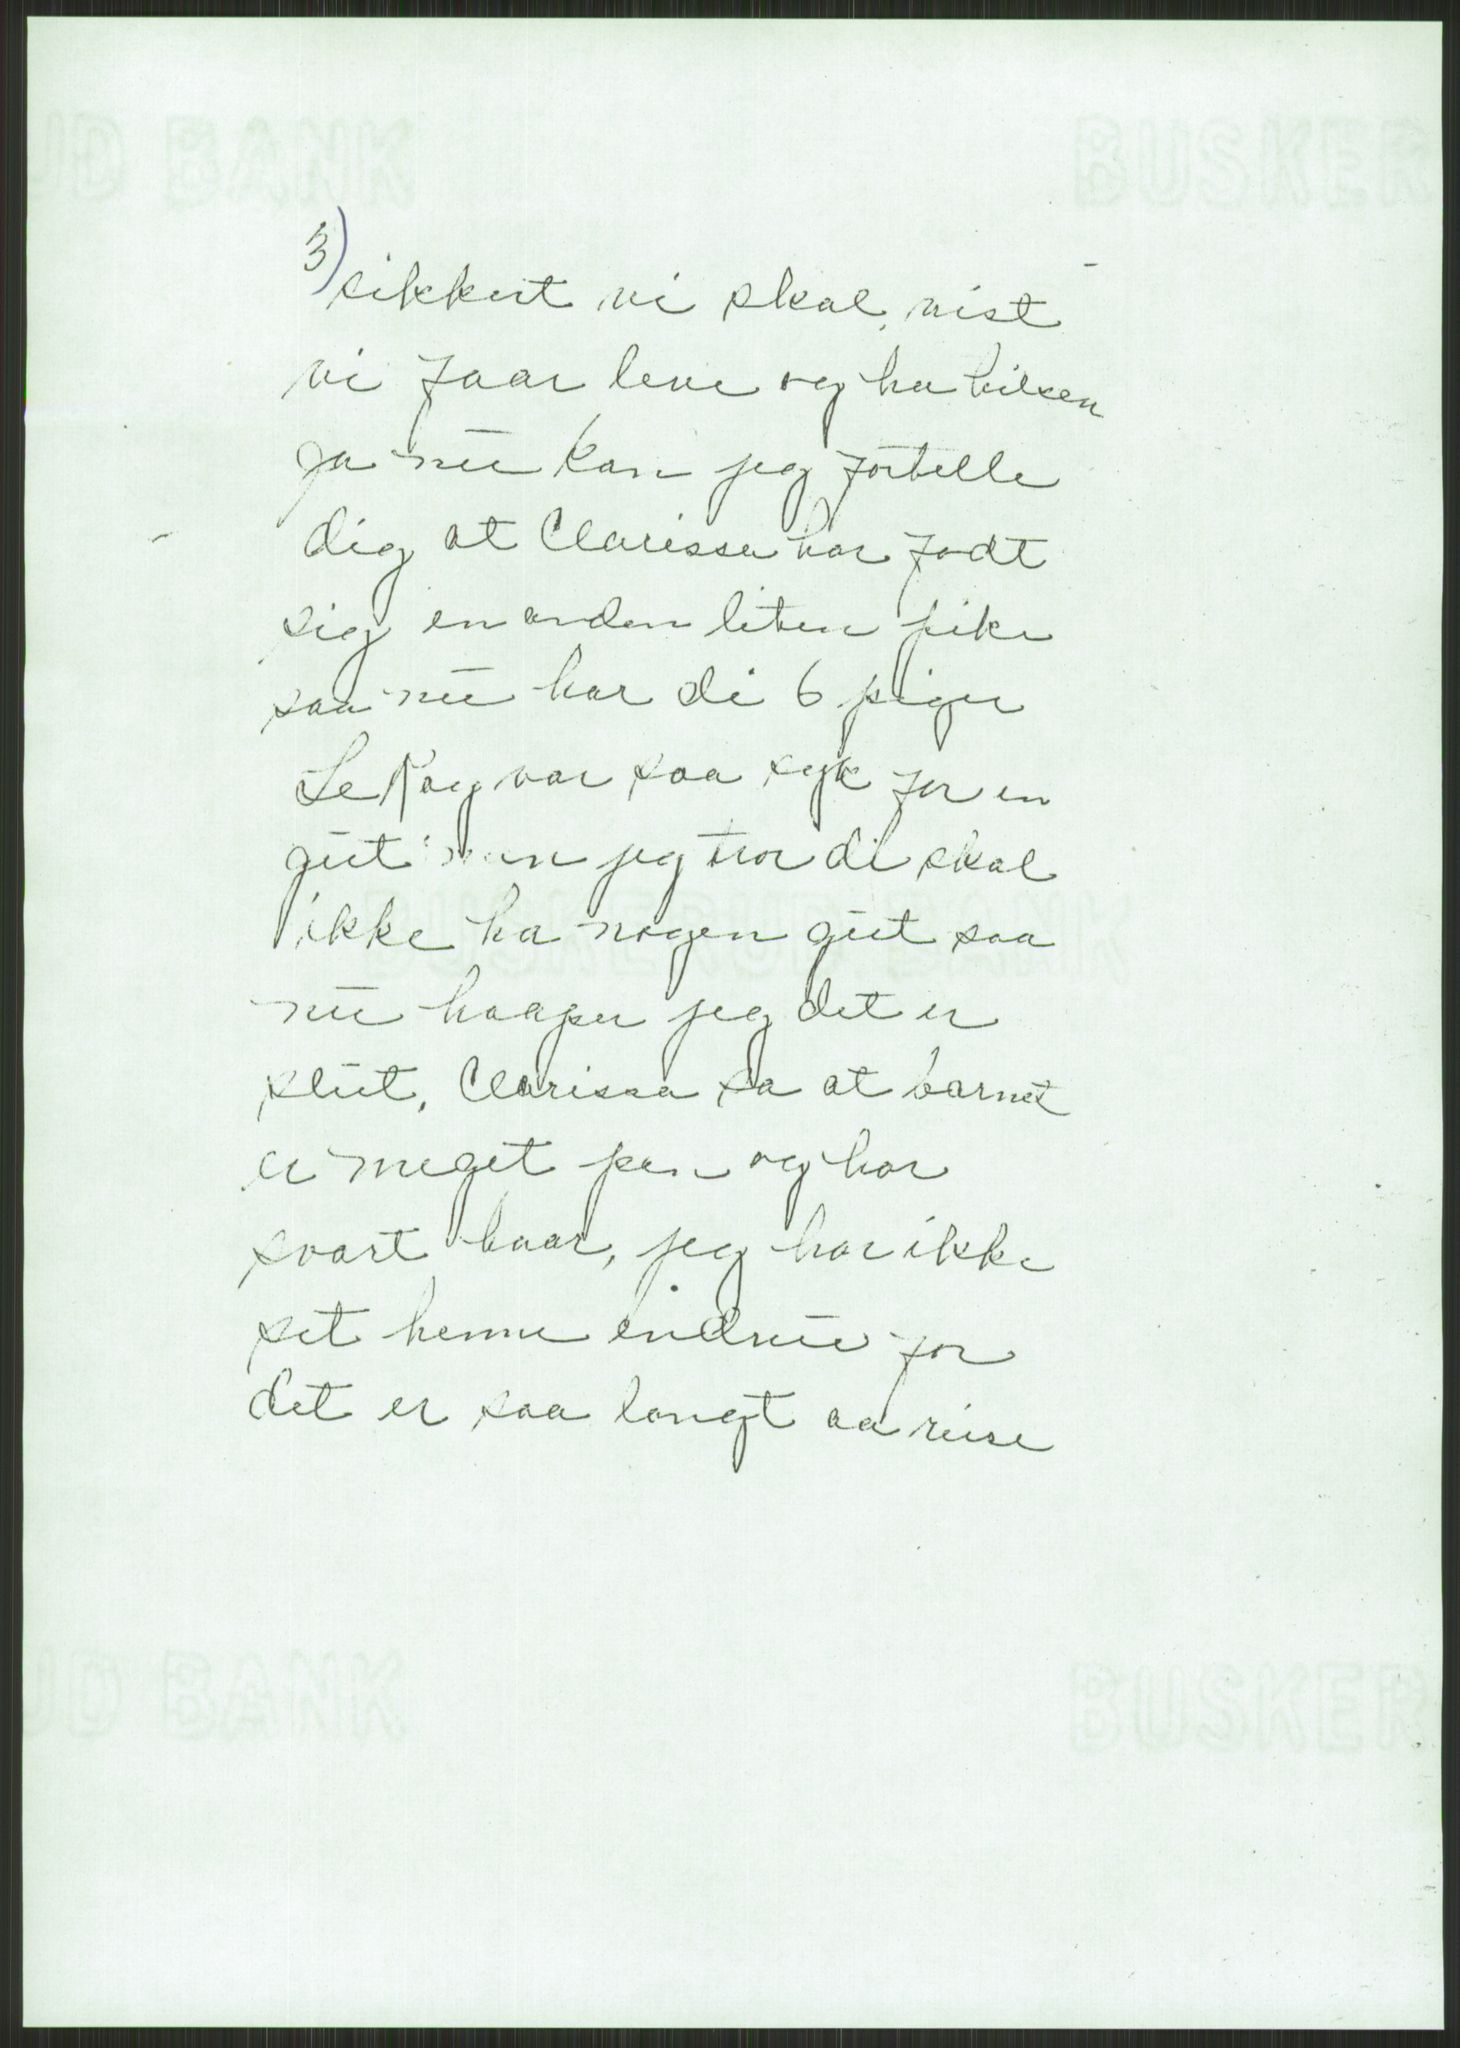 3)
sikkert vi skal, vist
vi faar leve og ha hilsen
ja nu kan jeg fortelle
dig at Clarissa har fodt
sig en anden liten pike
saa nu har di 6 piger
LeRoy var saa syk for en
gut men jeg tror di skal
ikke ha nogen gut saa
nu haaper jeg det er
slut, Clarissa sa at barnet
er meget pen og har
svart haar, jeg har ikke
set henne endnu for
det er saa langt aa reise
UD BANK
BUSKER
BUSKERUD BANK
UD BANK
BUSKER